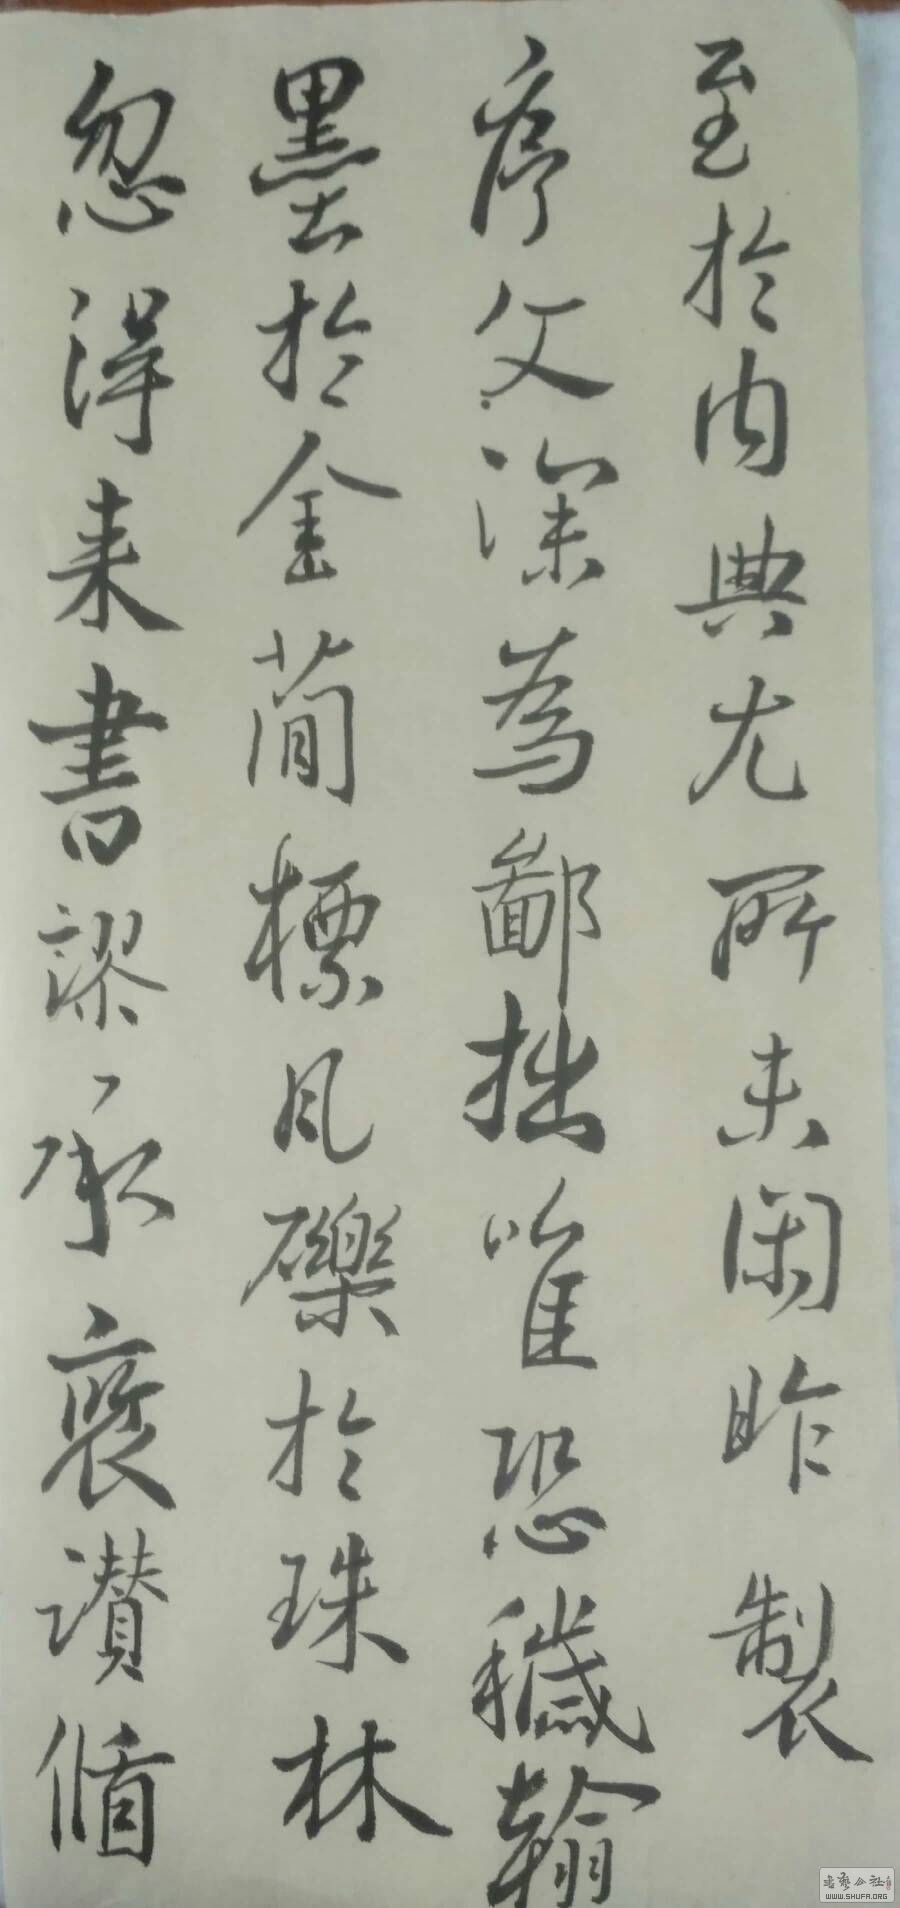 至於内典尤所未閑昨製
序文深為鄙拙唯恐穢翰
墨於金簡標瓦礫於珠林
忽得来書謬承褒讃脩
書藝公社
WWW.SHUFA.ORG